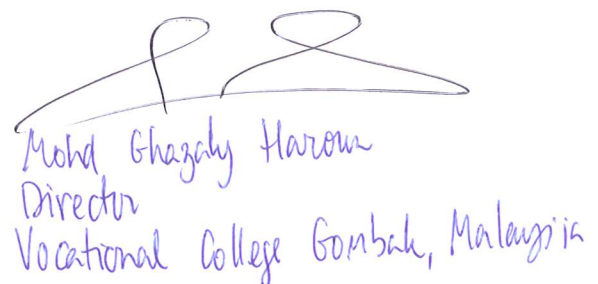 Mohd Ghazaly Haroun
Director
Vocational College Gombak, Malaysia